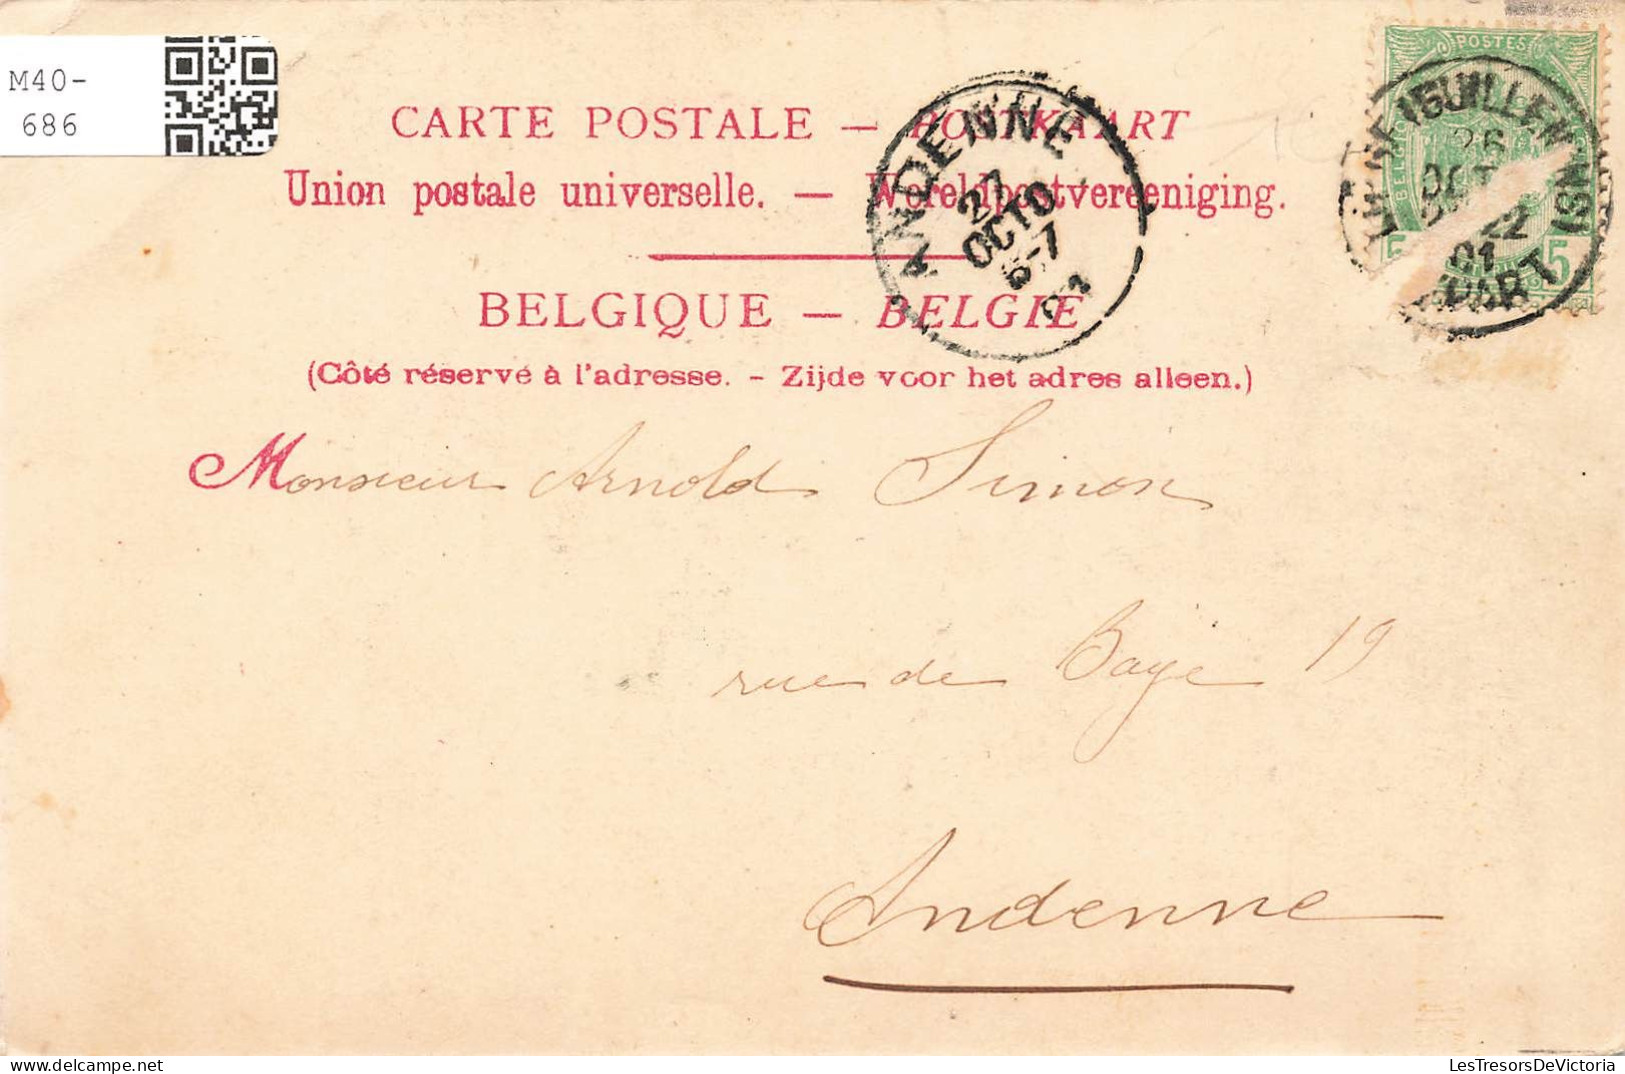 M40-
686
CARTE POSTALE — POSTKAART
Union postale universelle. — Wereldpostvereeniging.
BELGIQUE — BELGIE
(Côté réservé à l'adresse. - Zijde voor het adres alleen.)
ANDENNE
27
OCTO
6-7
01
POSTES
5
(GUILLEMINS)
26
OCT
22
01
DÉPART
Monsieur Arnold Simon
rue de Baye 19
Andenne
LesTresorsDeVictoria